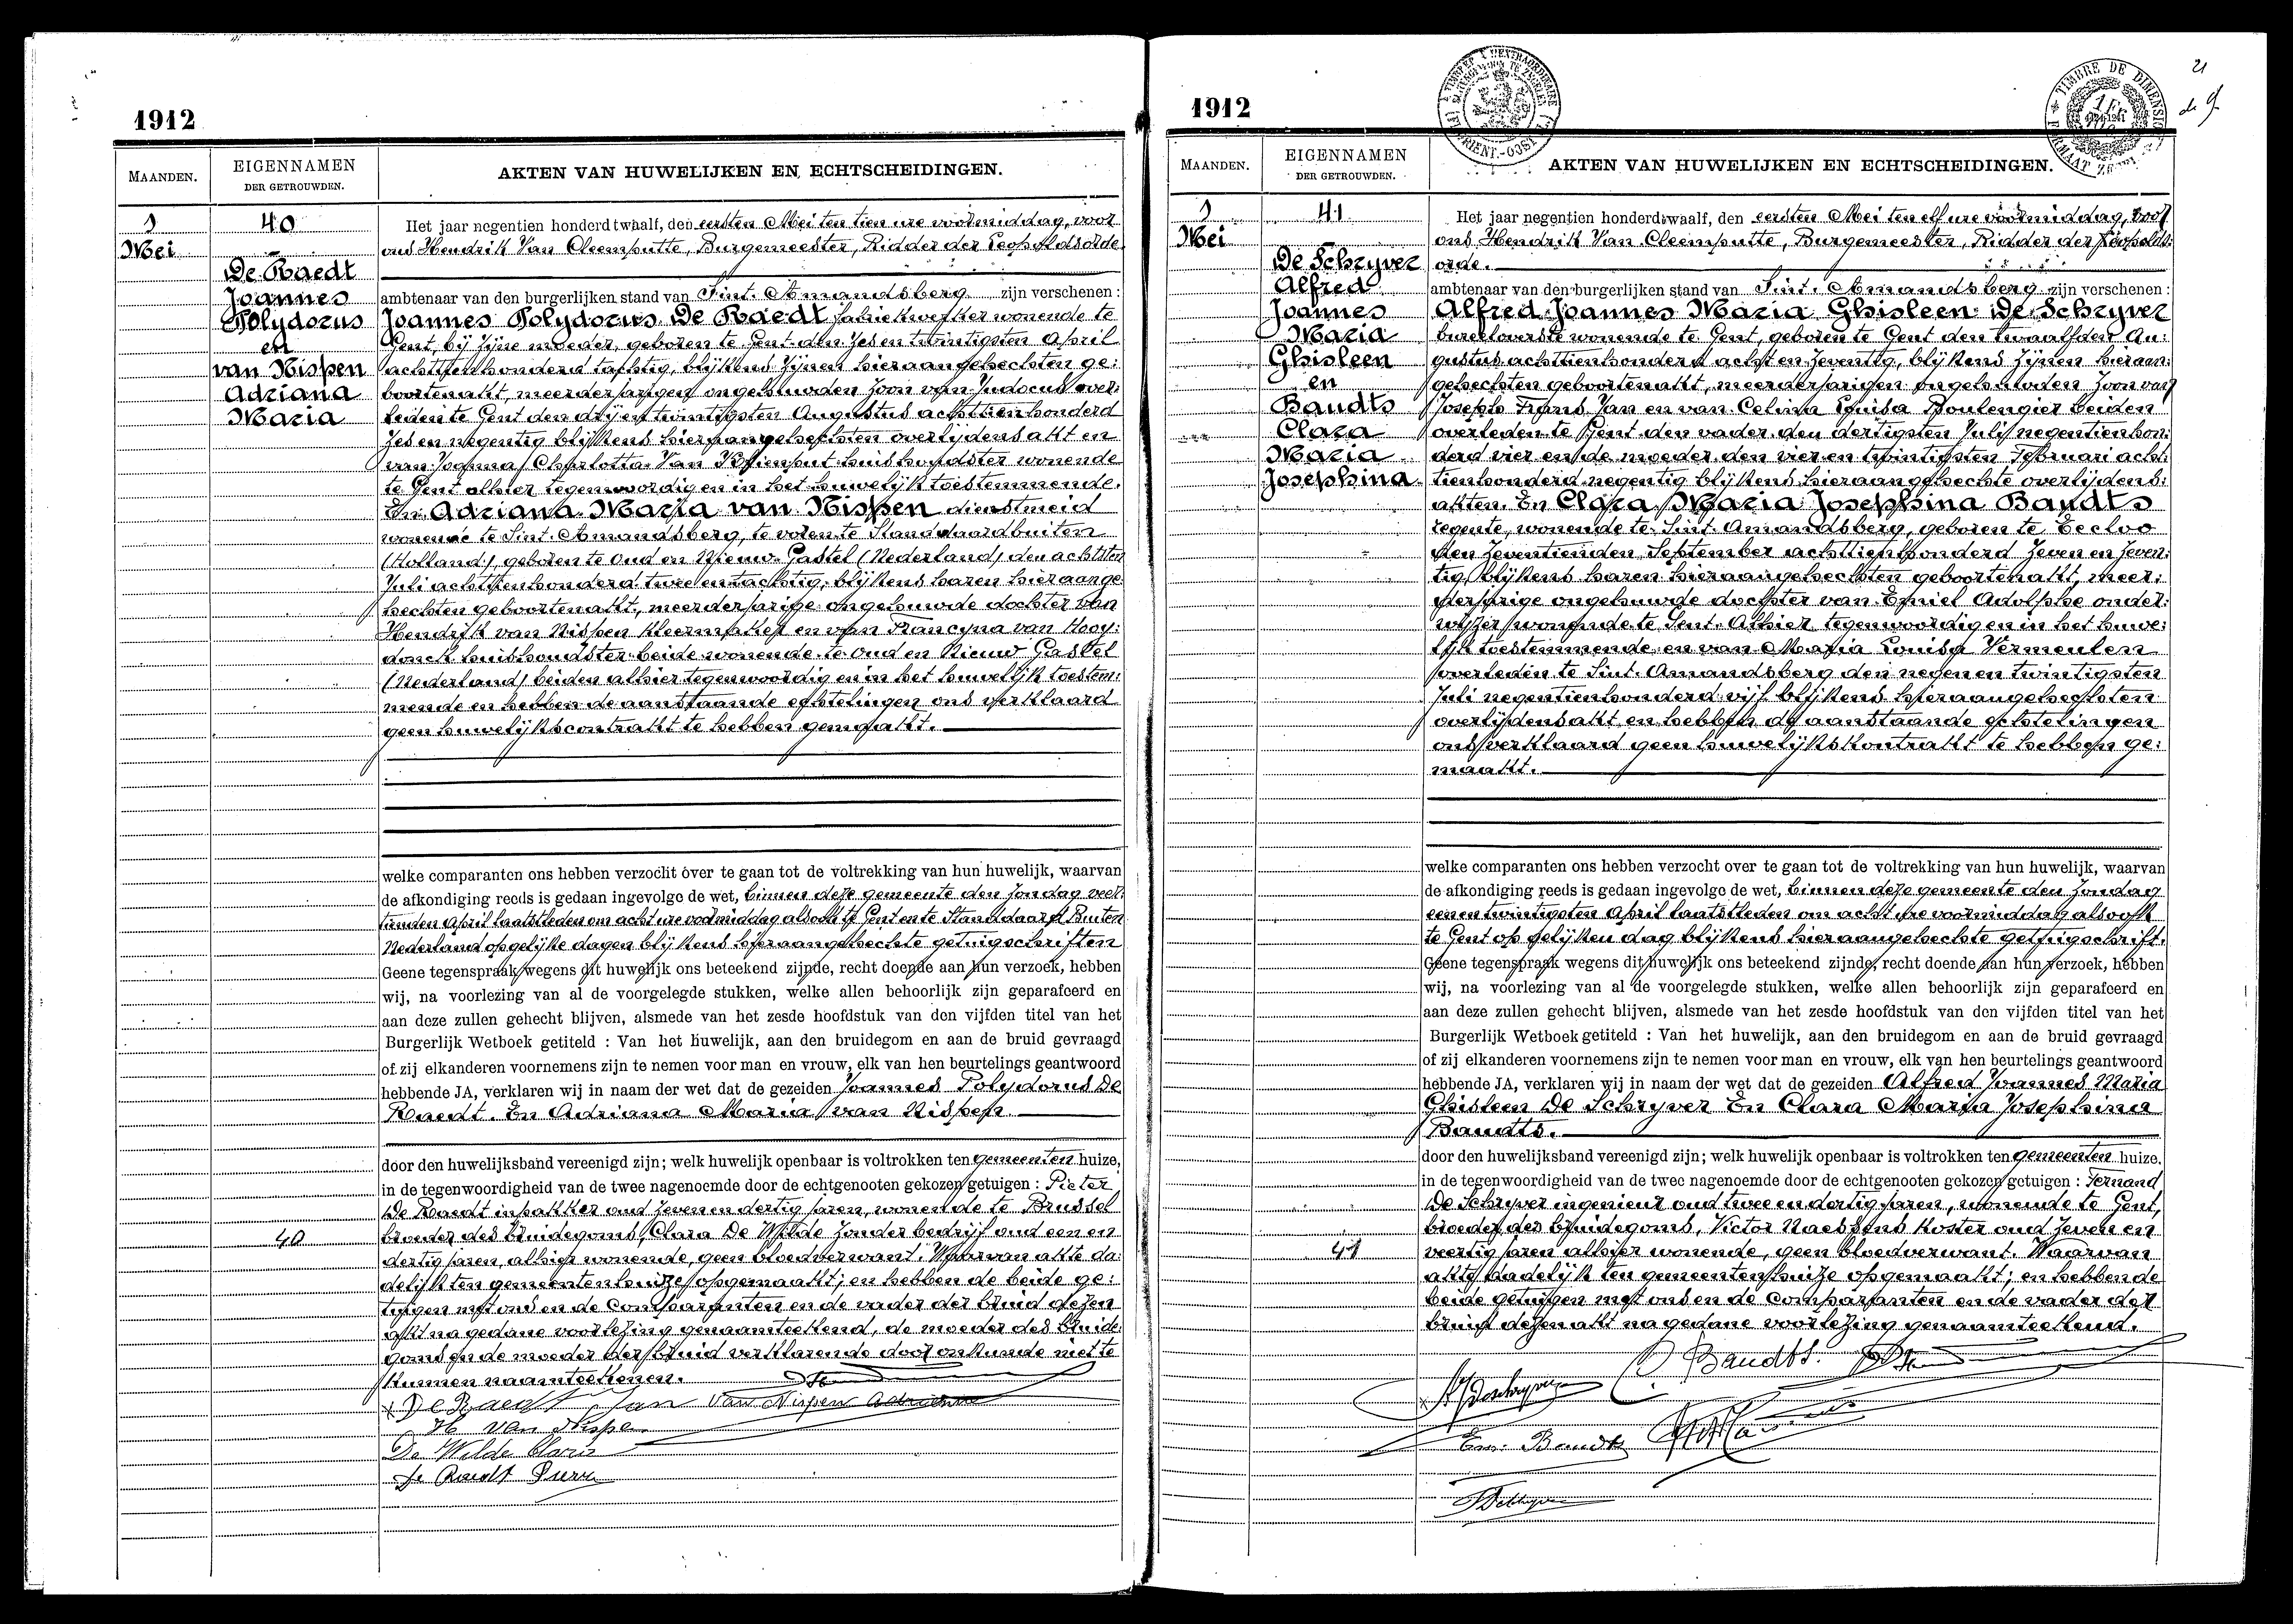 1912
MAANDEN.
EIGENNAMEN
DER GETROUWDEN.
AKTEN VAN HUWELIJKEN EN ECHTSCHEIDINGEN.
1
Mei
40
De Raedt
Joannes
Polydorus
en
van Nispen
Adriana
Maria
Het jaar negentien honderd twaalf, den eersten Mei ten tien ure voormiddag, voor
ons Hendrik Van Cleemputte, Burgemeester, Ridder der Leopoldsorde
ambtenaar van den burgerlijken stand van Sint. Amandsberg zijn verschenen :
Joannes Polydorus De Raedt fabriekwerker wonende te
Gent, bij zijne moeder, geboren te Gent den zes en twintigsten April
achttienhonderd tachtig, blijkens zijnen hieraangehechten ge:
boortenakt, meerderjarigen ongehuwden zoon van Judocus over:
leden te Gent den drij en twintigsten Augustus achttienhonderd
zes en negentig blijkens hieraangehechten overlijdensakt en
van Joanna Charlotta Van huishoudster wonende
te Gent alhier tegenwoordig en in het huwelijk toestemmende.
En Adriana Maria van Nispen dienstmeid
wonende te Sint. Amandsberg, te voren te Standdaardbuiten
(Holland), geboren te Oud en Nieuw Gastel (Nederland) den achtsten
Juli achttienhonderd twee en tachtig, blijkens haren hieraange
hechten geboortenakt, meerderjarige ongehuwde dochter van
Hendrik van Nispen kleermaker en van Francyna van Hooy:
donck huishoudster beide wonende te Oud en Nieuw Gastel
(Nederland) beiden alhier tegenwoordig en in het huwelijk toestem:
mende en hebben de aanstaande echtelingen ons verklaard
geen huwelijkscontrakt te hebben gemaakt.
welke comparanten ons hebben verzocht over te gaan tot de voltrekking van hun huwelijk, waarvan
de afkondiging reeds is gedaan ingevolge de wet, binnen deze gemeente den zondag veer
tienden April laatstleden om acht ure voormiddag alsook te Gent en te Standdaard Buiten
Nederland op gelijke dagen blijkens hieraangehechte getuigschriften
Geene tegenspraak wegens dit huwelijk ons beteekend zijnde, recht doende aan hun verzoek, hebben
wij, na voorlezing van al de voorgelegde stukken, welke allen behoorlijk zijn geparafeerd en
aan deze zullen gehecht blijven, alsmede van het zesde hoofdstuk van den vijfden titel van het
Burgerlijk Wetboek getiteld : Van het huwelijk, aan den bruidegom en aan de bruid gevraagd
of zij elkanderen voornemens zijn te nemen voor man en vrouw, elk van hen beurtelings geantwoord
hebbende JA, verklaren wij in naam der wet dat de gezeiden Joannes Polydorus De
Raedt. En Adriana Maria van Nispen.
door den huwelijksband vereenigd zijn; welk huwelijk openbaar is voltrokken ten gemeenten huize,
in de tegenwoordigheid van de twee nagenoemde door de echtgenooten gekozen getuigen : Pieter
De Raedt inpakker oud zeven en dertig jaren, wonende te Brussel
broeder des bruidegoms, Clara De Wilde zonder bedrijf oud een en
dertig jaren, alhier wonende, geen bloedverwant. Waarvan akte da:
delijk ten gemeentenhuize opgemaakt; en hebben de beide ge:
tuigen met ons en de Comparanten en de vader der bruid dezen
akt na gedane voorlezing genaamteekend, de moeder des bruide
goms en de moeder der bruid verklarende door onkunde niet te
kunnen naamteekenen.
40
De Raedt Jan Van Nispen Adriana
H Van Nispe
De Wilde Clara
De Raedt Pierre
21
1912
MAANDEN.
EIGENNAMEN
DER GETROUWDEN.
AKTEN VAN HUWELIJKEN EN ECHTSCHEIDINGEN.
TIMBRE DE DIMENSION
1
Mei
41
De Schryver
Alfred
Joannes
Maria
Ghisleen
en
Baudts
Clara
Maria
Josephina
Het jaar negentien honderd twaalf, den eersten Mei ten elf ure voormiddag, voor
ons Hendrik Van Cleemputte, Burgemeester, Ridder der Leopolds:
orde.
ambtenaar van den burgerlijken stand van Sint. Amandsberg zijn verschenen :
Alfred Joannes Maria Ghisleen De Schryver
bureeloverste wonende te Gent, geboren te Gent den twaalfden Au:
gustus achttienhonderd acht en zeventig, blijkens zijnen hieraan:
gehechten geboortenakt, meerderjarigen ongehuwden zoon van
Joseph Frans Jan en van Celina Louisa Boulengier beiden
overleden te Gent den vader den dertigsten Juli negentienhon:
derd vier en de moeder den vier en twintigsten Februari acht:
tienhonderd negentig blijkens hieraangehechte overlijdens:
akten. En Clara Maria Josephina Baudts
regente, wonende te Sint. Amandsberg, geboren te Eecloo
den zeventienden September achttienhonderd zeven en zeven:
tig, blijkens haren hieraangehechten geboortenakt, meer:
derjarige ongehuwde dochter van Emiel Adolphe onder:
wijzer wonende te Gent. Alhier tegenwoordig en in het huwe:
lijk toestemmende en van Maria Louisa Vermeulen
overleden te Sint. Amandsberg den negen en twintigsten
Juli negentienhonderd vijf blijkens hieraangehechten
overlijdensakt en hebben de aanstaande echtelingen
ons verklaard geen huwelijkskontrakt te hebben ge:
maakt.
welke comparanten ons hebben verzocht over te gaan tot de voltrekking van hun huwelijk, waarvan
de afkondiging reeds is gedaan ingevolge de wet, binnen deze gemeente den zondag
een en twintigsten April laatstleden om acht ure voormiddag alsook
te Gent op gelijken dag blijkens hieraangehechte getuigschrift.
Geene tegenspraak wegens dit huwelijk ons beteekend zijnde, recht doende aan hun verzoek, hebben
wij, na voorlezing van al de voorgelegde stukken, welke allen behoorlijk zijn geparafeerd en
aan deze zullen gehecht blijven, alsmede van het zesde hoofdstuk van den vijfden titel van het
Burgerlijk Wetboek getiteld : Van het huwelijk, aan den bruidegom en aan de bruid gevraagd
of zij elkanderen voornemens zijn te nemen voor man en vrouw, elk van hen beurtelings geantwoord
hebbende JA, verklaren wij in naam der wet dat de gezeiden Alfred Joannes Maria
Ghisleen De Schryver En Clara Maria Josephina
Baudts.
door den huwelijksband vereenigd zijn; welk huwelijk openbaar is voltrokken ten gemeenten huize,
in de tegenwoordigheid van de twee nagenoemde door de echtgenooten gekozen getuigen : Fernand
De Schryver ingenieur oud twee en dertig jaren, wonende te Gent,
broeder des bruidegoms, Victor Naessens koster oud zeven en
veertig jaren alhier wonende, geen bloedverwant. Waarvan
akte dadelijk ten gemeentenhuize opgemaakt; en hebben de
beide getuigen met ons en de Comparanten en de vader der
bruid dezen akt na gedane voorlezing genaamteekend.
41
C. Baudts.
A Deschryver
Em. Baudts
F Deschryver